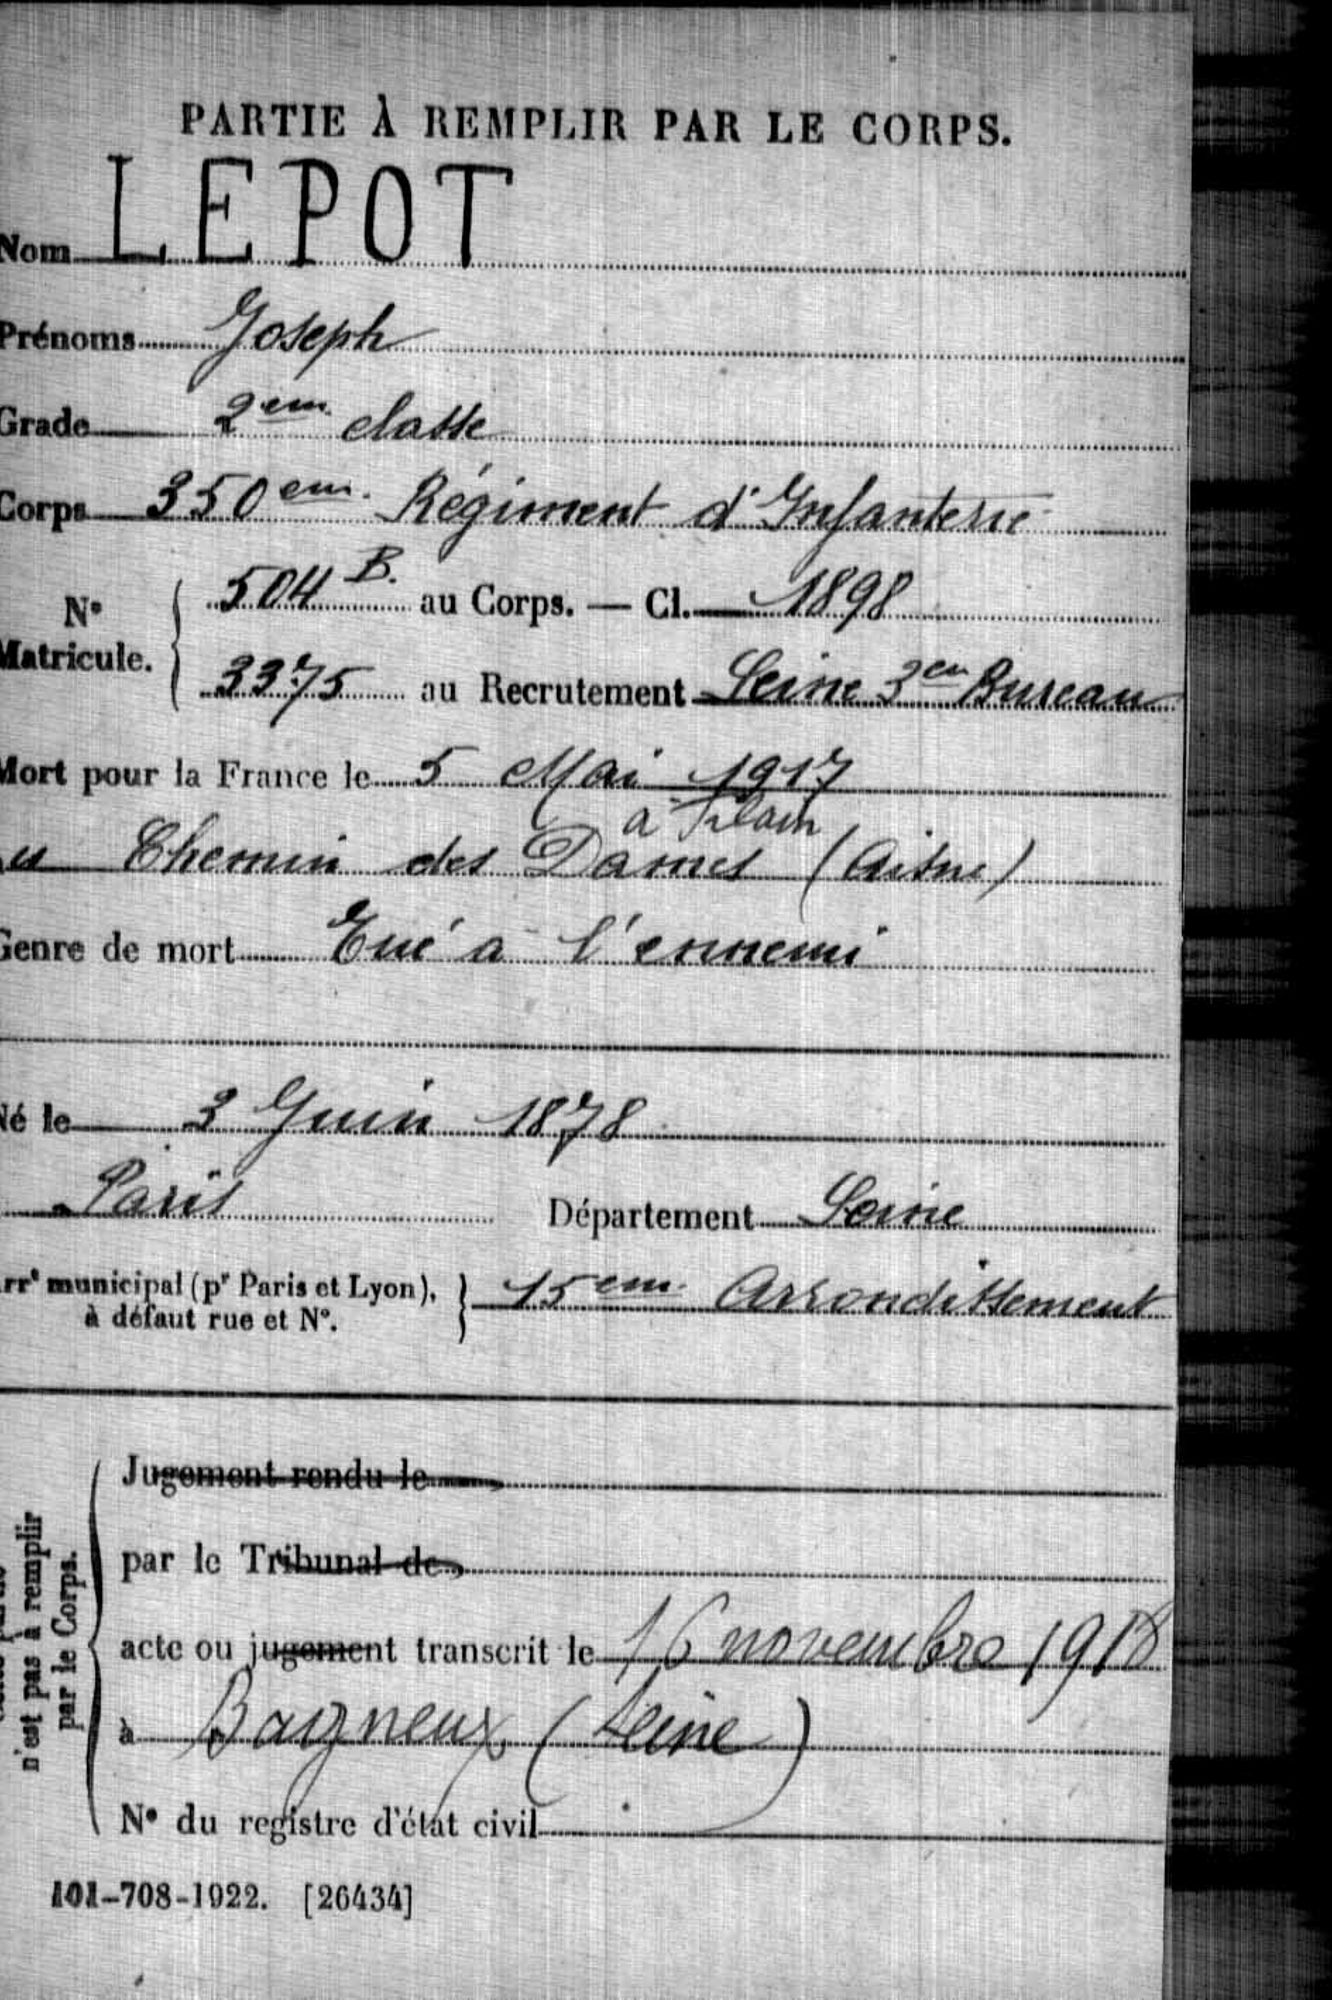 PARTIE À REMPLIR PAR LE CORPS.
Nom LEPOT
Prénoms Joseph
Grade 2em classe
Corps 350em Régiment d'Infanterie
N° Matricule. 504 B. au Corps. — Cl. 1898
3375 au Recrutement Seine 3em Bureau
Mort pour la France le 5 Mai 1917
à Filain
Chemin des Dames (Aisne)
Genre de mort Tué à l'ennemi
Né le 3 Juin 1878
Paris Département Seine
Arrt municipal (pr Paris et Lyon), à défaut rue et N°. 15em Arrondissement
Jugement rendu le
par le Tribunal de
acte ou jugement transcrit le 16 novembre 1918
à Bagneux (Seine)
N° du registre d'état civil
n'est pas à remplir
par le Corps.
101-708-1922. [26434]